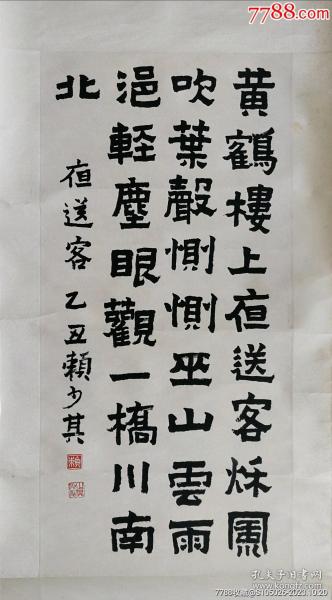 7788.com
黄鶴樓上夜送客秋風
吹葉聲惻惻巫山雲雨
浥輕塵眼觀一橋川南
北
夜送客 乙丑賴少其
孔夫子旧书网
7788收藏@S105026-2023.10.20